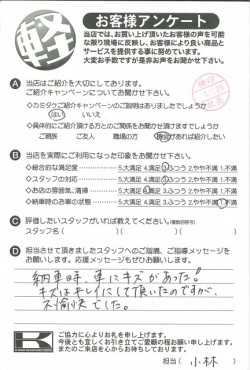 軽
お客様アンケート
当店では、お買い上げ頂いたお客様の声を可能
な限り現場に反映し、お客様により良い商品と
サービスを提供する事に努めています。
大変お手数ですが是非お声をお聞かせ下さい。
A 当店はご紹介を大切にしております。
ご紹介キャンペーンについてお聞かせ下さい。
◇カミタケご紹介キャンペーンのご説明はありましたでしょうか
はい いいえ
◇具体的にご紹介頂ける方とのご関係をお聞かせ頂けますでしょうか
ご親族 ご友人 職場の方 機会があれば紹介したい
B 当店を実際にご利用になった印象をお聞かせ下さい。
◇総合的な満足度 5.大満足 4.満足 3.ふつう 2.やや不満 1.不満
◇スタッフの対応 5.大満足 4.満足 3.ふつう 2.やや不満 1.不満
◇お店の雰囲気、清掃 5.大満足 4.満足 3.ふつう 2.やや不満 1.不満
◇納車時のお車の状態 5.大満足 4.満足 3.ふつう 2.やや不満 1.不満
C 評価したいスタッフがいれば教えてください。(複数回答可)
スタッフ名( )( )
D 担当させて頂きましたスタッフへのご感想、ご指導メッセージを
お願いします。応援メッセージもぜひお願いします。
納車時、車にキズがあった!
キズはキレイにして頂いたのですが、
不愉快でした。
K
ご協力に心よりお礼を申し上げます。
今後とも宜しくお引き立てご愛顧の程お願い申し上げます。
またのご来店を心からお待ちしております。
担当( 小林 )